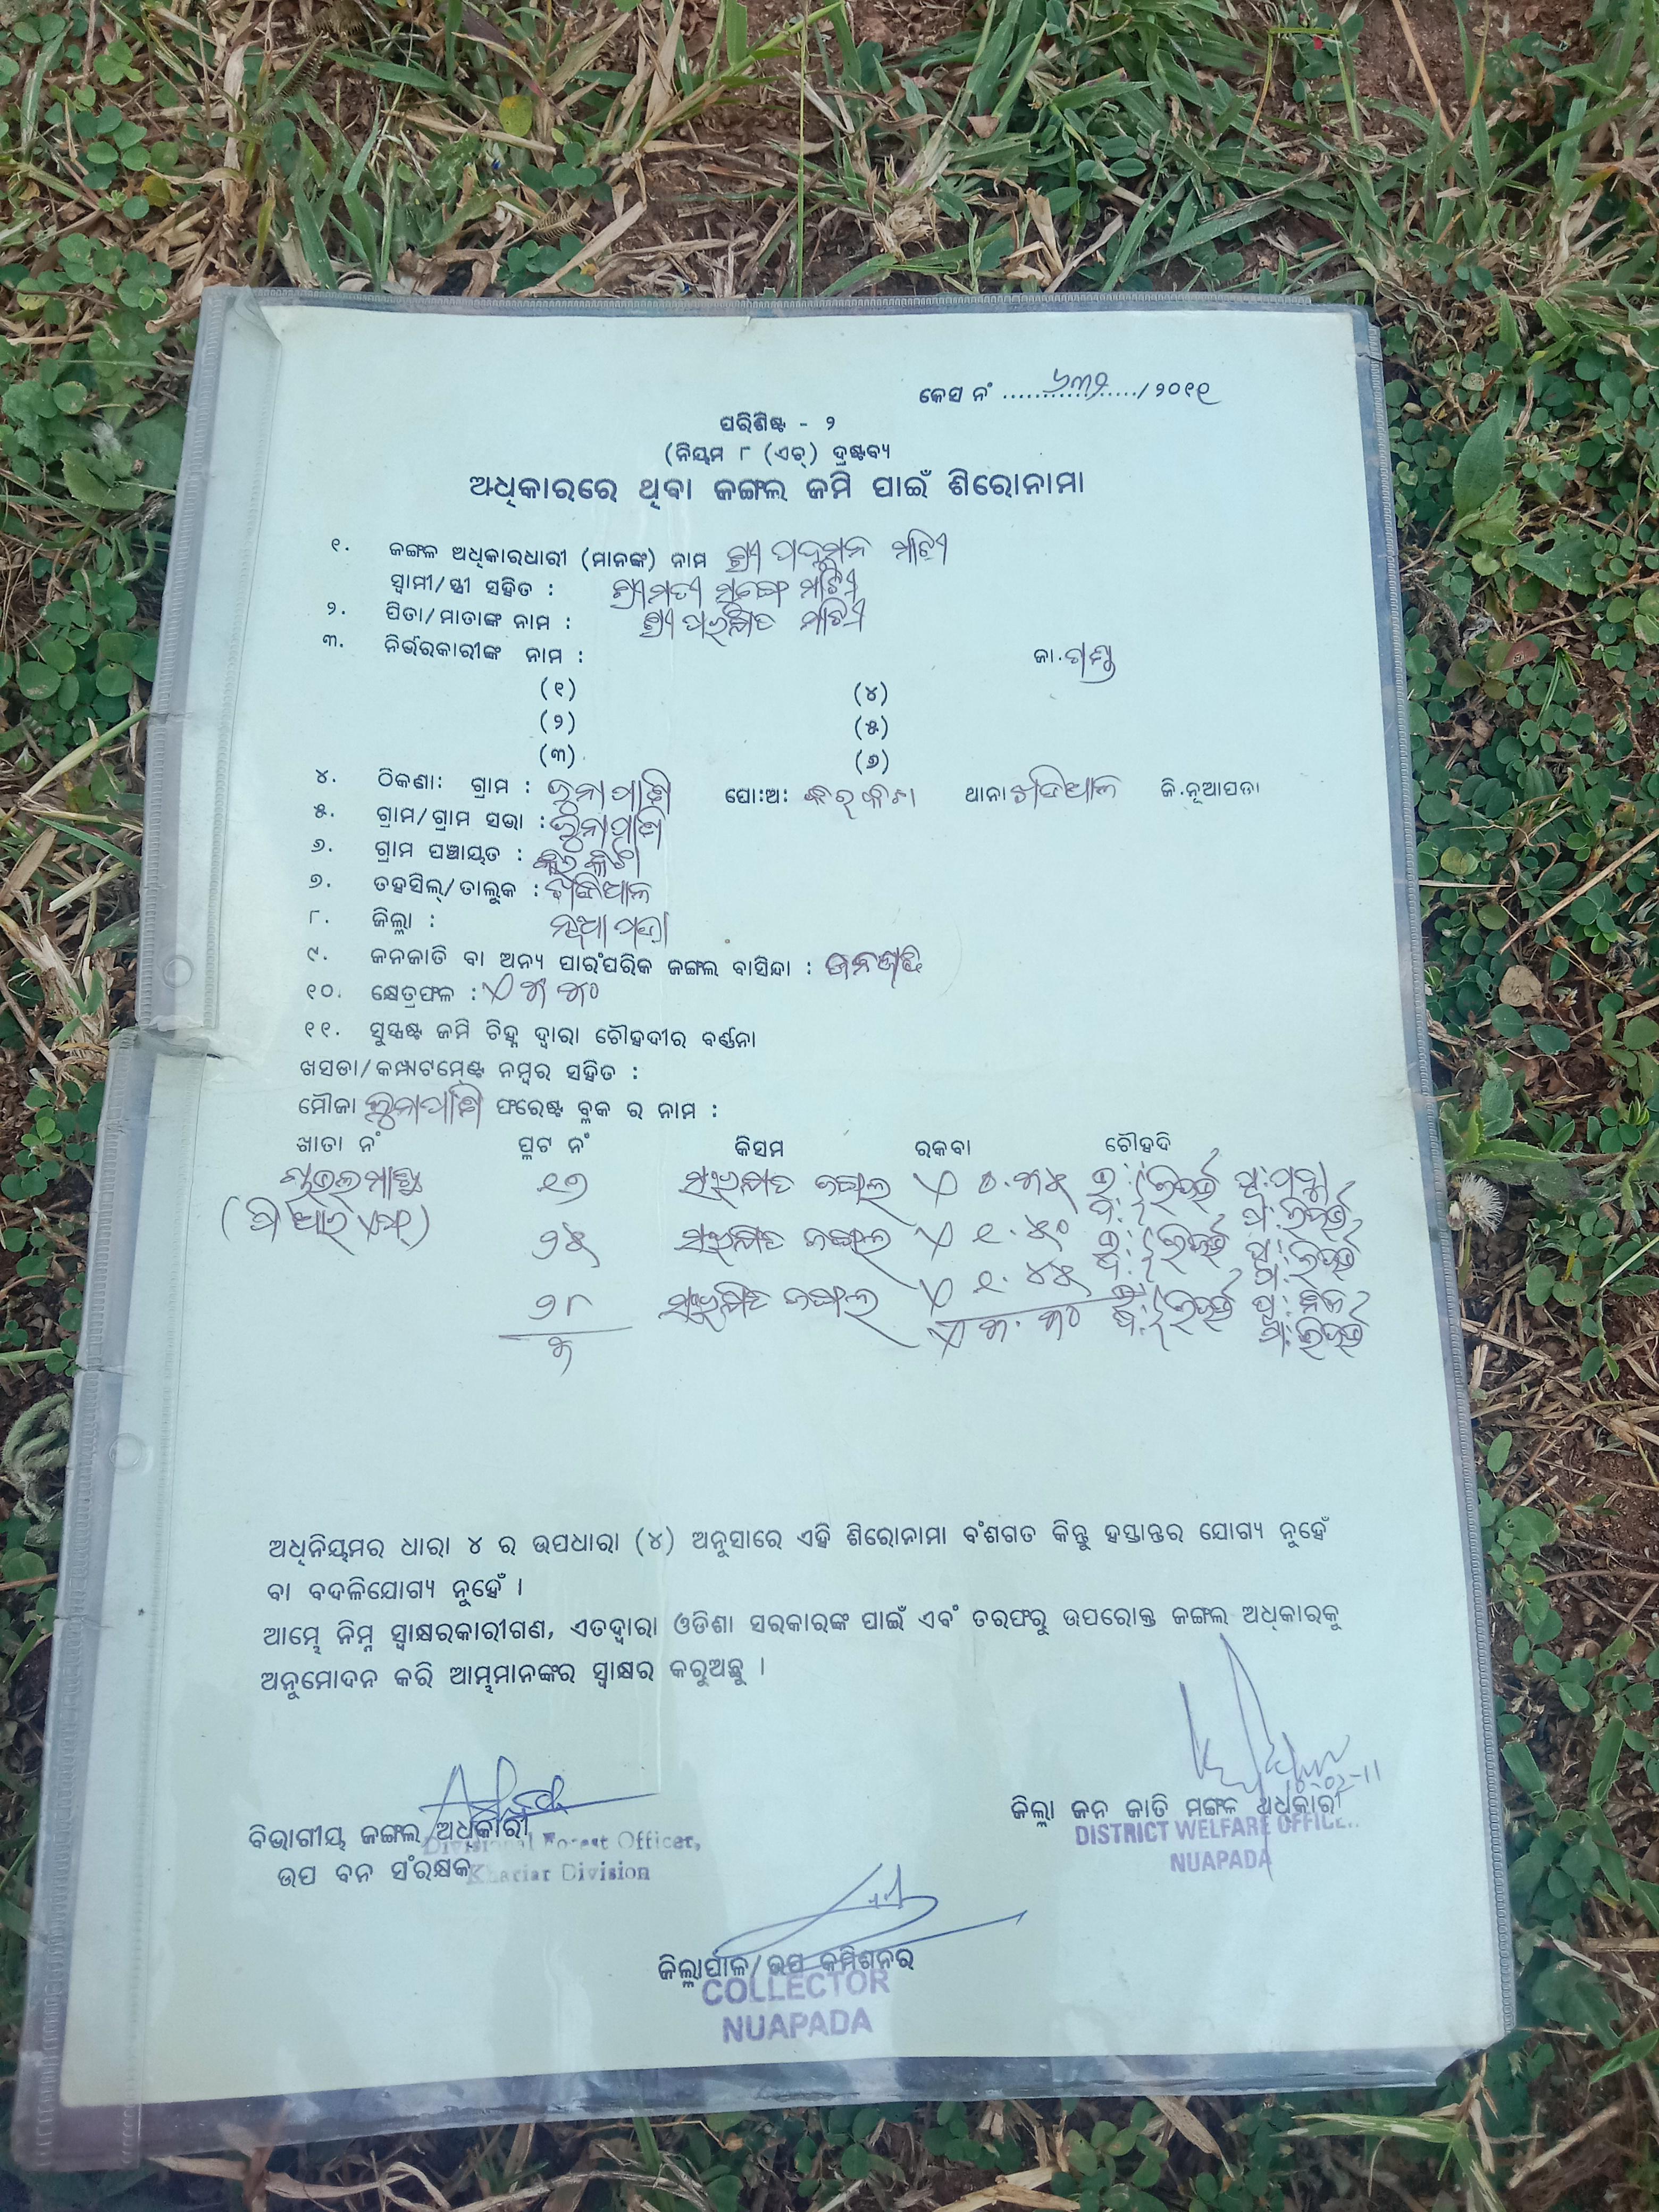 କେସ ନଂ ୬୩୨/୨୦୧୧
ପରିଶିଷ୍ଟ - ୨
(ନିୟମ ୮ (ଏଚ୍) ଦ୍ରଷ୍ଟବ୍ୟ
ଅଧିକାରରେ ଥିବା ଜଙ୍ଗଲ ଜମି ପାଇଁ ଶିରୋନାମା
୧. ଜଙ୍ଗଳ ଅଧିକାରଧାରୀ (ମାନଙ୍କ) ନାମ ଶ୍ରୀ ପଦ୍ମନ ମାଝୀ
ସ୍ୱାମୀ/ସ୍ତ୍ରୀ ସହିତ : ଶ୍ରୀମତୀ ମାଝୀ
୨. ପିତା/ମାତାଙ୍କ ନାମ : ଶ୍ରୀ ମାଝୀ
୩. ନିର୍ଭରକାରୀଙ୍କ ନାମ : ଜା. ଗଣ୍ଡ
(୧) (୪)
(୨) (୫)
(୩) (୬)
୪. ଠିକଣା: ଗ୍ରାମ : ଲୁନାପାଣି ପୋ:ଅ: କରକଟା ଥାନା ଖଡିଆଳ ଜି.ନୂଆପଡା
୫. ଗ୍ରାମ/ଗ୍ରାମ ସଭା : ଲୁନାପାଣି
୬. ଗ୍ରାମ ପଞ୍ଚାୟତ :
୭. ତହସିଲ୍/ତାଲୁକ : ଖଡିଆଳ
୮. ଜିଲ୍ଲା : ନୂଆପଡା
୯. ଜନଜାତି ବା ଅନ୍ୟ ପାରଂପରିକ ଜଙ୍ଗଲ ବାସିନ୍ଦା : ଜନଜାତି
୧୦. କ୍ଷେତ୍ରଫଳ : ଏ ୩.୩୦
୧୧. ସୁସ୍ପଷ୍ଟ ଜମି ଚିହ୍ନ ଦ୍ୱାରା ଚୌହଦୀର ବର୍ଣ୍ଣନା
ଖସଡା/କମ୍ପାଟମେଣ୍ଟ ନମ୍ବର ସହିତ :
ମୌଜା ଲୁନାପାଣି ଫରେଷ୍ଟ ବ୍ଲକ ର ନାମ :
ଖାତା ନଂ ପ୍ଲଟ ନଂ କିସମ ରକବା ଚୌହଦି
୧୭ ସଂରକ୍ଷିତ ଜଙ୍ଗଲ ଏ ୦.୩୫ ଉ: ରିଜର୍ଭ ପୂ:
(ପି ଆର ଏଫ୍) ଦ: ପ: ରିଜର୍ଭ
୨୫ ସଂରକ୍ଷିତ ଜଙ୍ଗଲ ଏ ୧.୫୦ ଉ: ରିଜର୍ଭ ପୂ: ରିଜର୍ଭ
ଦ: ପ:
୨୮ ସଂରକ୍ଷିତ ଜଙ୍ଗଲ ଏ ୧.୪୫ ଉ: ରିଜର୍ଭ ପୂ: ନିଜ
୩ ଏ ୩.୩୦ ଦ: ପ: ରିଜର୍ଭ
ଅଧିନିୟମର ଧାରା ୪ ର ଉପଧାରା (୪) ଅନୁସାରେ ଏହି ଶିରୋନାମା ବଂଶଗତ କିନ୍ତୁ ହସ୍ତାନ୍ତର ଯୋଗ୍ୟ ନୁହେଁ
ବା ବଦଳିଯୋଗ୍ୟ ନୁହେଁ ।
ଆମ୍ଭେ ନିମ୍ନ ସ୍ୱାକ୍ଷରକାରୀଗଣ, ଏତଦ୍ୱାରା ଓଡିଶା ସରକାରଙ୍କ ପାଇଁ ଏବଂ ତରଫରୁ ଉପରୋକ୍ତ ଜଙ୍ଗଲ ଅଧିକାରକୁ
ଅନୁମୋଦନ କରି ଆମ୍ଭମାନଙ୍କର ସ୍ୱାକ୍ଷର କରୁଅଛୁ ।
ଜିଲ୍ଲା ଜନ ଜାତି ମଙ୍ଗଳ ଅଧିକାରୀ
DISTRICT WELFARE OFFICE..
NUAPADA
ବିଭାଗୀୟ ଜଙ୍ଗଲ ଅଧିକାରୀ
Divisional Forest Officer,
ଉପ ବନ ସଂରକ୍ଷକ Khariar Division
ଜିଲ୍ଲାପାଳ/ଉପ କମିଶନର
COLLECTOR
NUAPADA